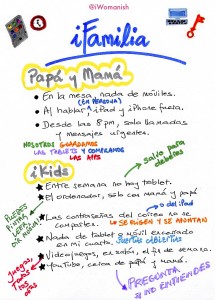 @iWomanish
iFamilia
Papá y Mamá
En la mesa, nada de móviles.
(EN PERSONA)
Al hablar ↑ iPad y iPhone fuera.
Desde las 8pm, solo llamadas
y mensajes urgentes.
NOSOTROS GUARDAMOS
LAS TABLETS Y COMPRAMOS
LAS APPS
Salvo para
deberes
iKids
Entre semana no hay tablet.
El ordenador, sólo con mamá y papá
del iPad
Las contraseñas del correo no se
comparten. LO SE RIGEN Y SE ANOTAN
Nada de tablet o móvil encerrado
en mi cuarto. PUERTAS ABIERTAS
Videojuegos, en salón, el de verano.
YouTube, cerca de papá y mamá.
PUEDES
LEER
Juegos
todos
los
días
PREGUNTA
SI NO ENTIENDES